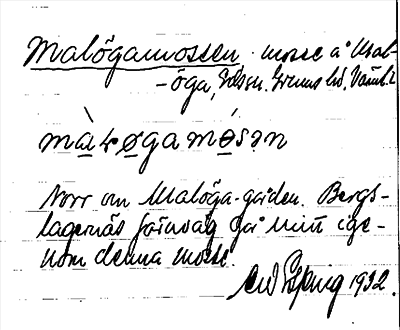 Malögamossen, mosse å Mal-
öga, Grums hd, Värml.
màḷøgamósən
Norr om Malöga-gården. Bergs-
lagernas järnväg går mitt ige-
nom denna mosse.
1932.